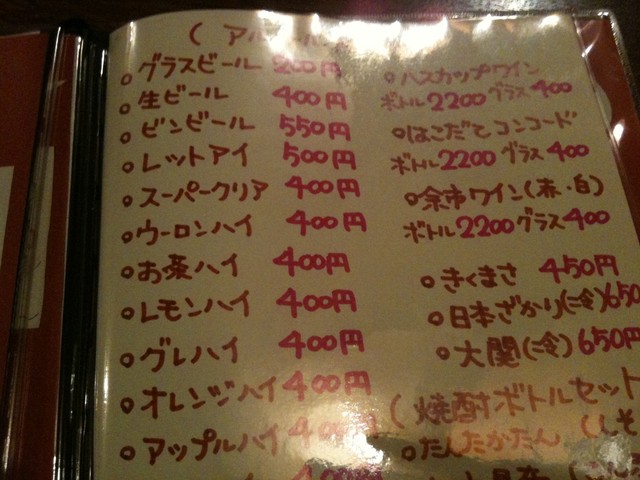 グラスビール 200円
生ビール 400円
ビンビール 550円
レットアイ 500円
スーパークリア 400円
ウーロンハイ 400円
お茶ハイ 400円
レモンハイ 400円
グレハイ 400円
オレンジハイ 400円
アップルハイ 400円
ハスカップワイン
ボトル2200 グラス400
はこだてコンコード
ボトル2200 グラス400
余市ワイン(赤・白)
ボトル2200 グラス400
きくまさ 450円
日本ざかり(冷)650
大関(冷)650円
(焼酎ボトルセット
たんたかたん (しそ